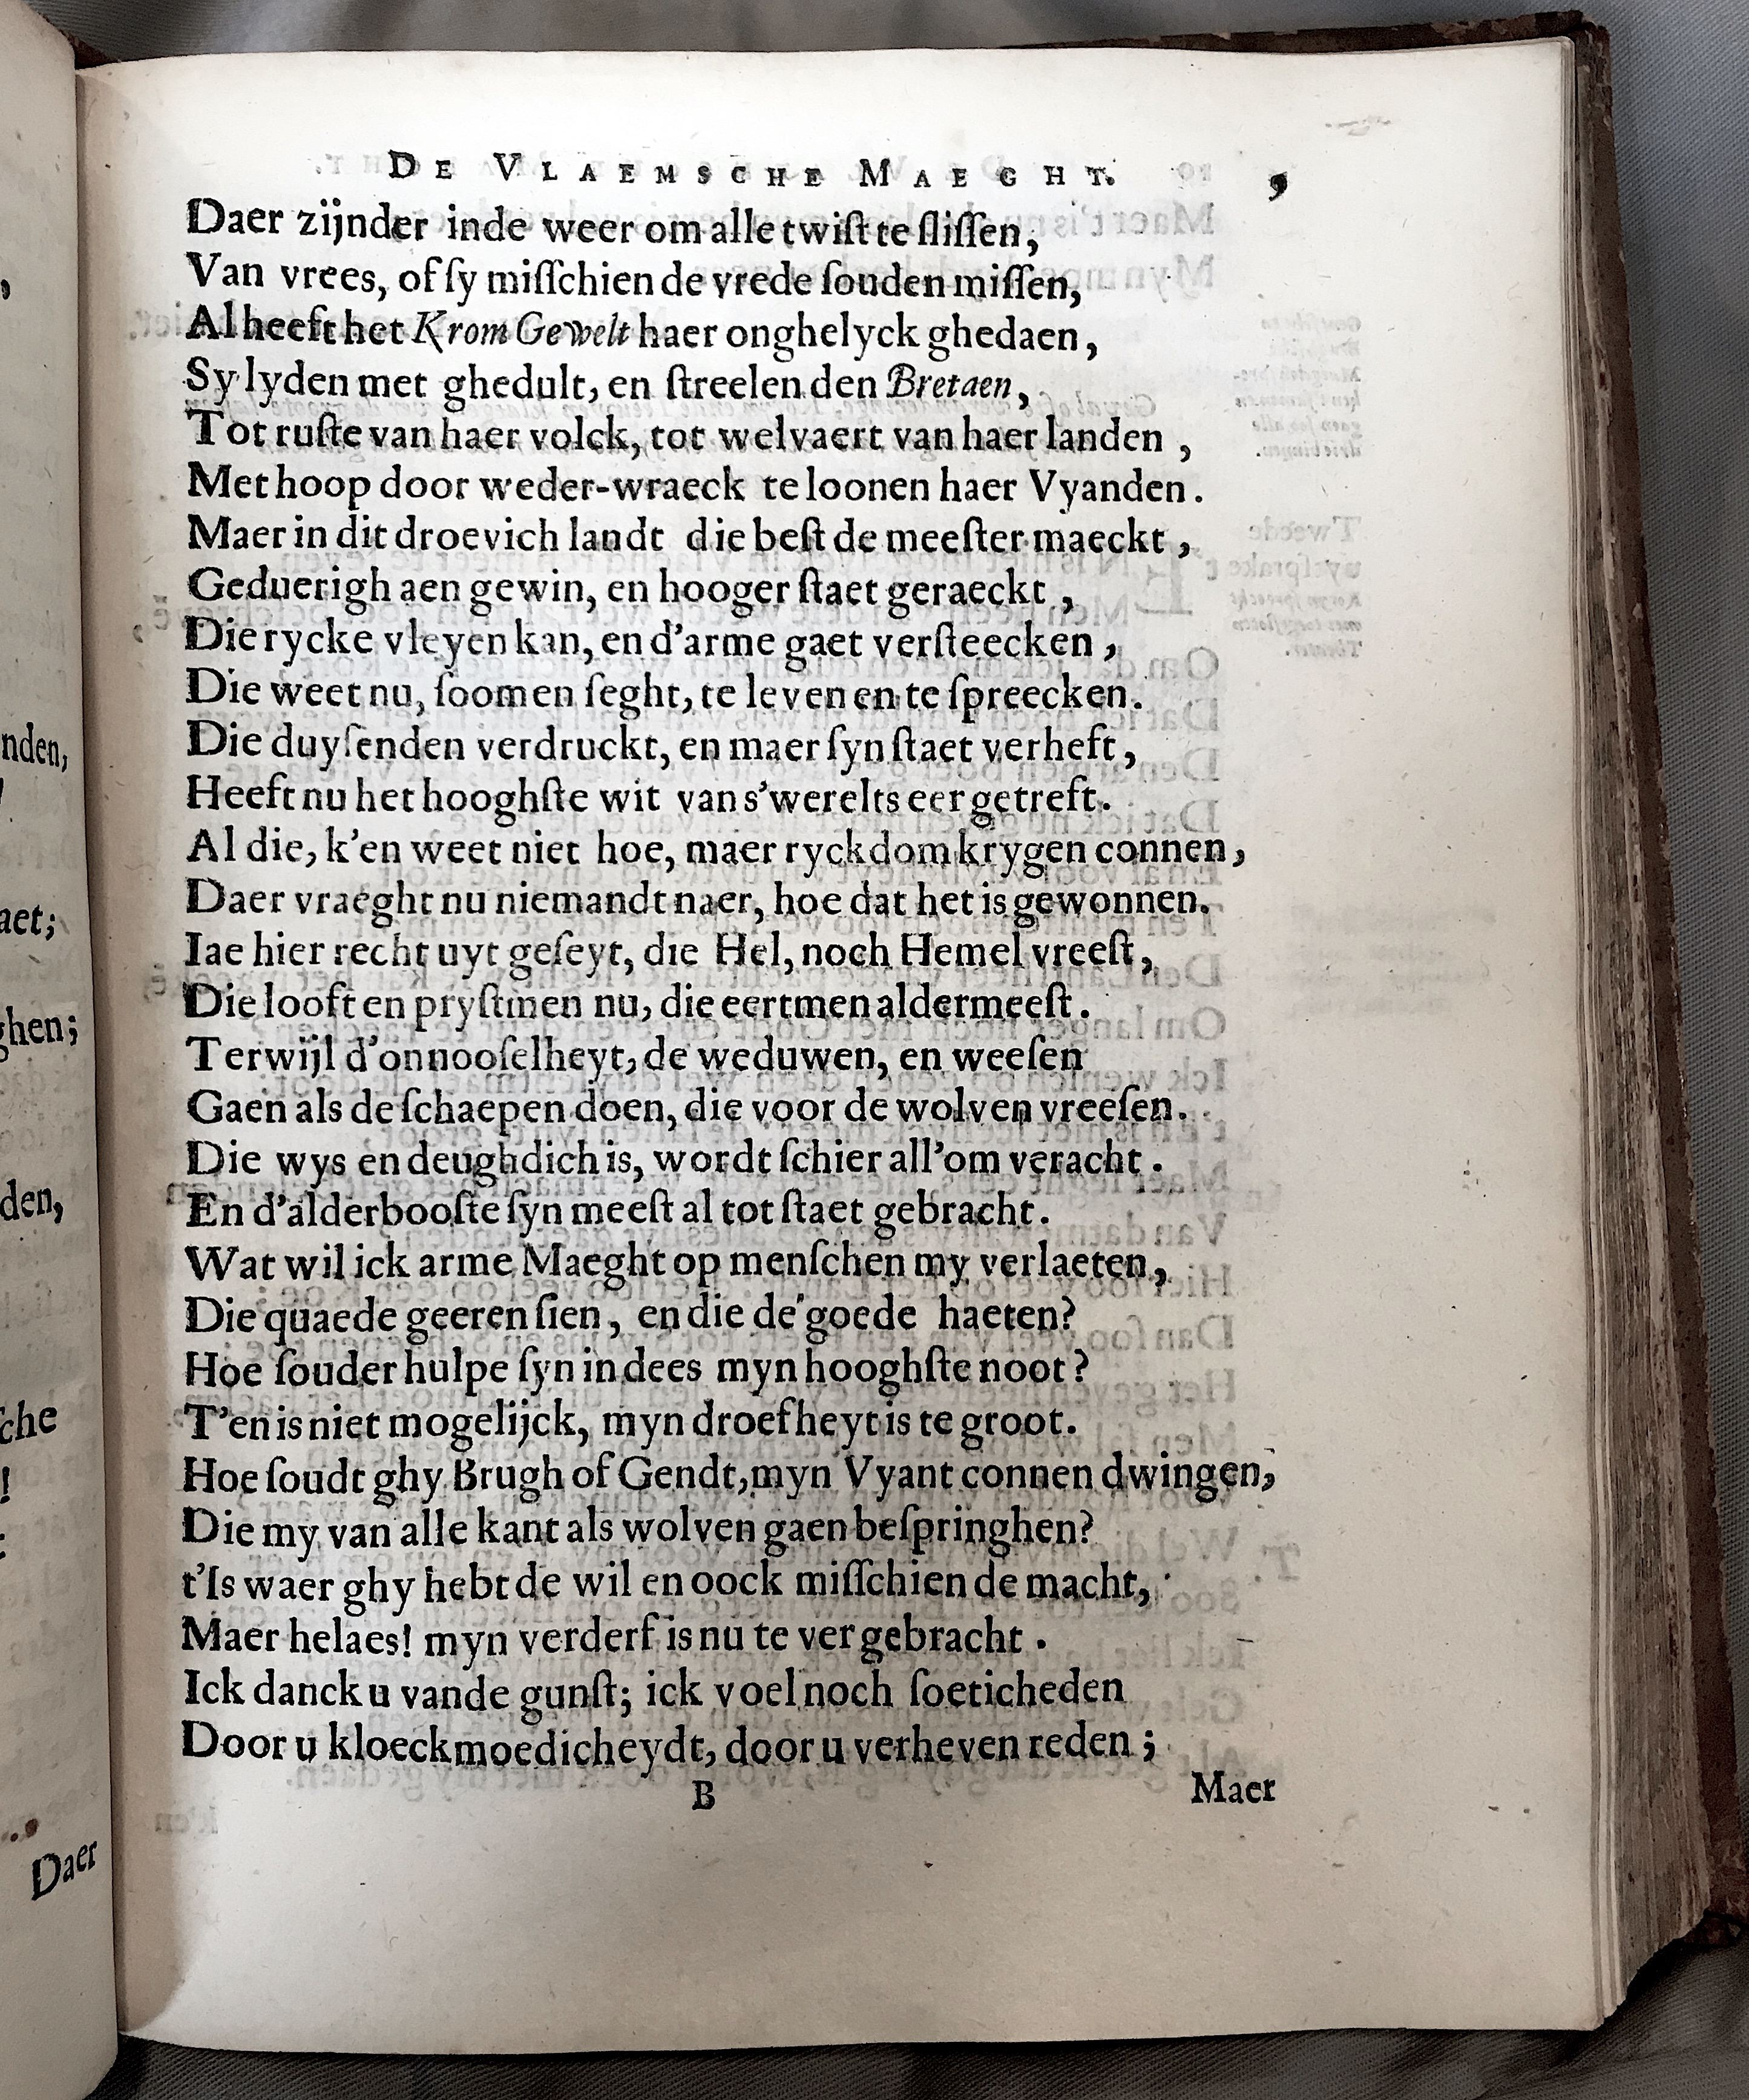 DE VLAEMSCHE MAEGHT. 9
Daer zijnder inde weer om alle twiſt te ſliſſen,
Van vrees, of ſy miſſchien de vrede ſouden miſſen,
Al heeft het Krom Gewelt haer onghelyck ghedaen,
Sy lyden met ghedult, en ſtreelen den Bretaen,
Tot ruſte van haer volck, tot welvaert van haer landen,
Met hoop door weder-wraeck te loonen haer Vyanden.
Maer in dit droevich landt die beſt de meeſter maeckt,
Geduerigh aen gewin, en hooger ſtaet geraeckt,
Die rycke vleyen kan, en d'arme gaet verſteecken,
Die weet nu, ſoomen ſeght, te leven en te ſpreecken.
Die duyſenden verdruckt, en maer ſyn ſtaet verheft,
Heeft nu het hooghſte wit van s'werelts eer getreft.
Al die, k'en weet niet hoe, maer ryckdom krygen connen,
Daer vraeght nu niemandt naer, hoe dat het is gewonnen.
Iae hier recht uyt geſeyt, die Hel, noch Hemel vreeſt,
Die looft en pryſtmen nu, die eertmen aldermeeſt.
Terwijl d'onnooſelheyt, de weduwen, en weeſen
Gaen als de ſchaepen doen, die voor de wolven vreeſen.
Die wys en deughdich is, wordt ſchier all'om veracht.
En d'alderbooſte ſyn meeſt al tot ſtaet gebracht.
Wat wil ick arme Maeght op menſchen my verlaeten,
Die quaede geeren ſien, en die de goede haeten?
Hoe ſouder hulpe ſyn in dees myn hooghſte noot?
T'en is niet mogelijck, myn droefheyt is te groot.
Hoe ſoudt ghy Brugh of Gendt, myn Vyant connen dwingen,
Die my van alle kant als wolven gaen beſpringhen?
t'Is waer ghy hebt de wil en oock miſſchien de macht,
Maer helaes! myn verderf is nu te ver gebracht.
Ick danck u vande gunſt; ick voel noch ſoeticheden
Door u kloeckmoedicheydt, door u verheven reden;
B Maer
nden,
aet;
ghen;
den,
ſche
!
:
Daer